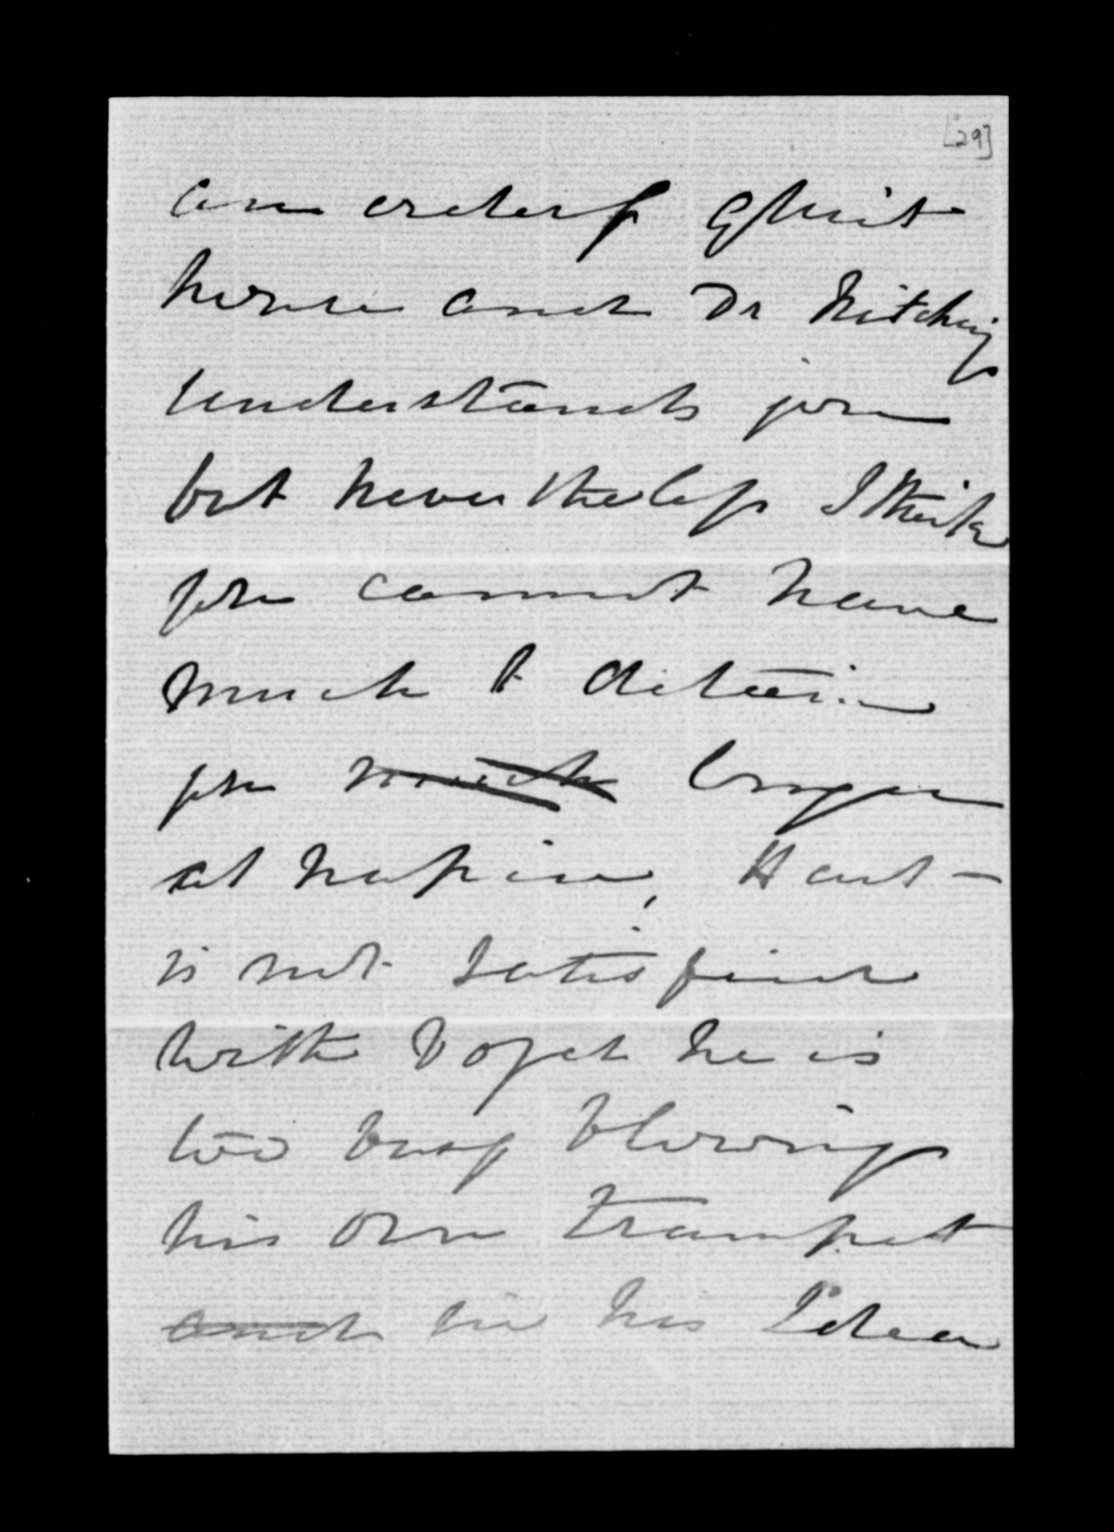 [29]
an orderly Quiet
house and Dr Hitchings
understands you
but nevertheless I think
you cannot have
much to detain
you much longer
at Napier, Hart -
is not satisfied
with Vogel he is
too busy blowing
his own trumpet
and in his Idea